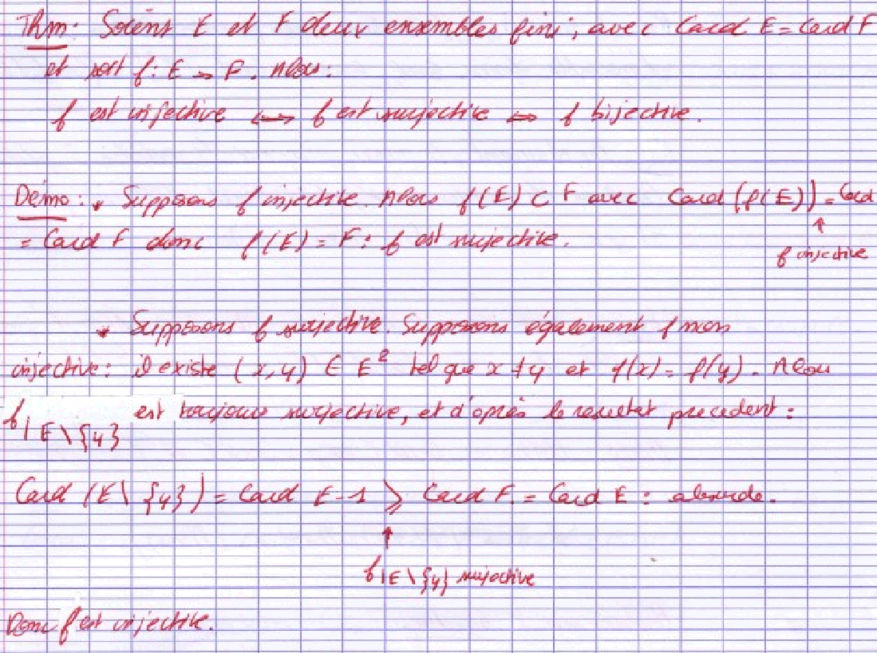 Thm: Soient E et F deux ensembles finis, avec Card E = Card F
et soit f: E → F. Alors:
f est injective ⟺ f est surjective ⟺ f bijective.
Démo: • Supposons f injective. Alors f(E) ⊂ F avec Card (f(E)) = Card
= Card F donc f(E) = F: f est surjective.
↑
f injective
• Supposons f surjective. Supposons également f non
injective: il existe (x,y) ∈ E² tel que x ≠ y et f(x) = f(y). Alors
f|E\{y} est toujours surjective, et d'après le resultat precedent:
Card (E\{y}) = Card E-1 ⩾ Card F = Card E: absurde.
↑
f|E\{y} surjective
Donc f est injective.